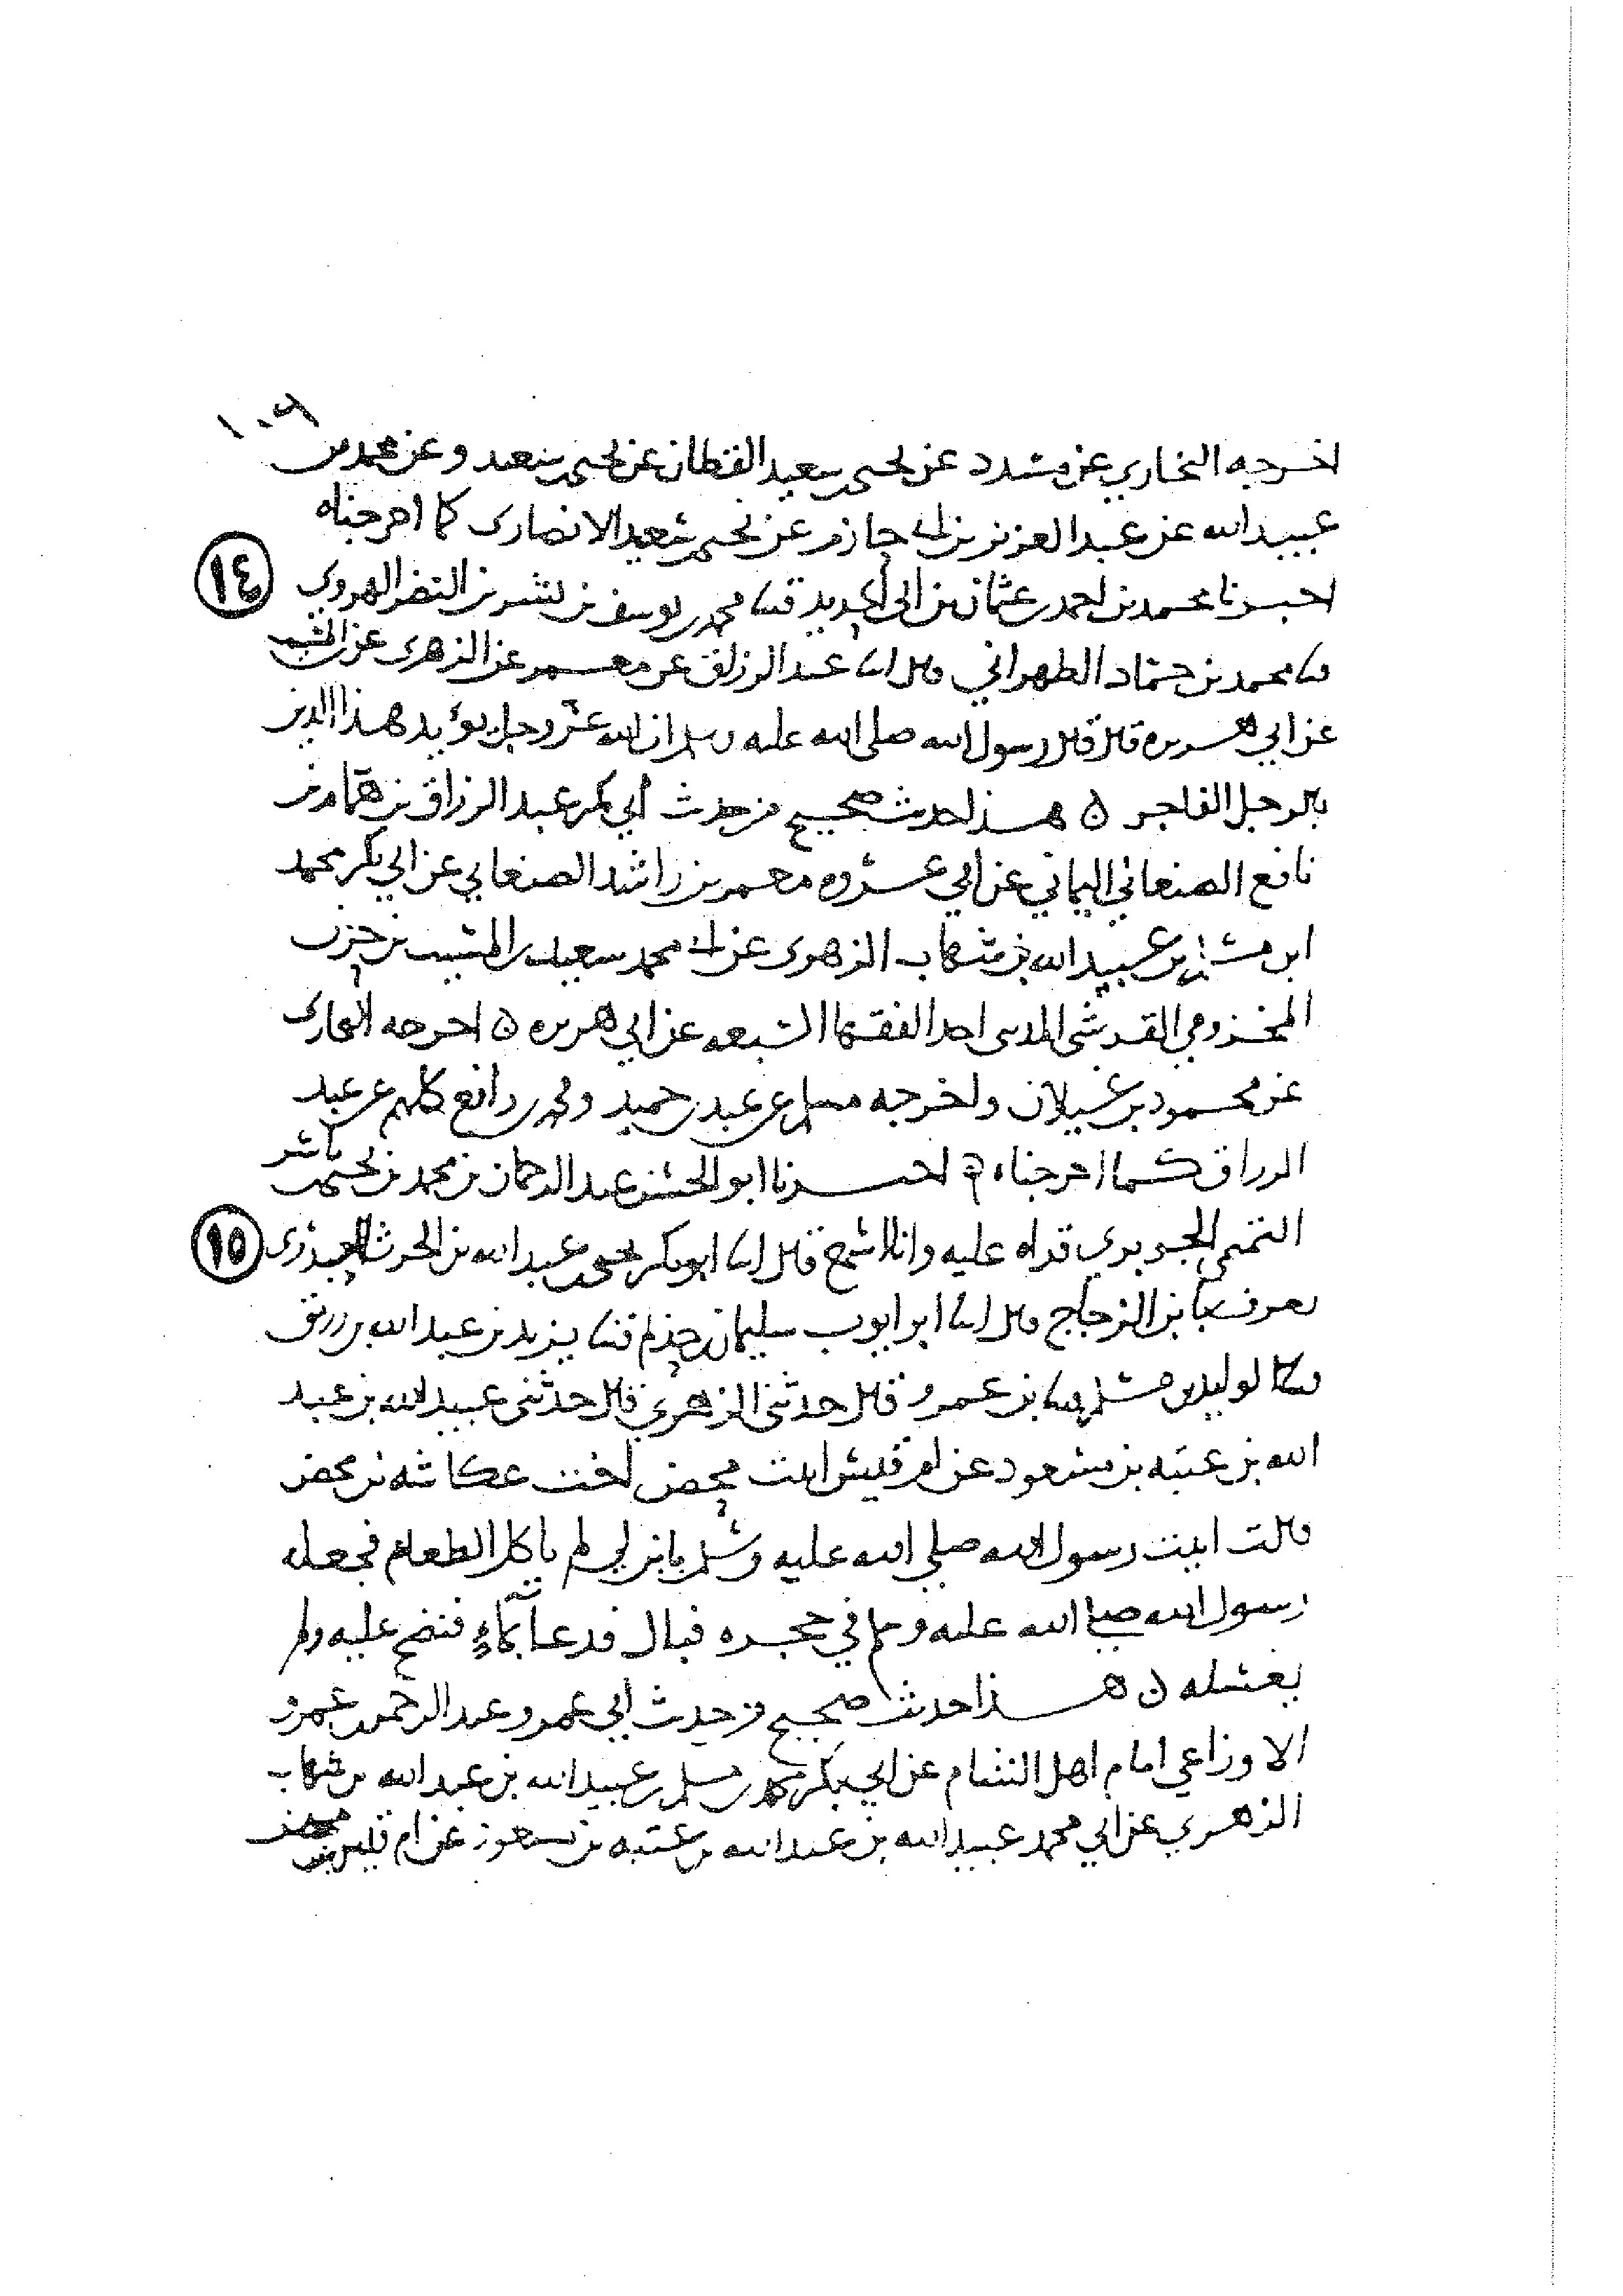 ١٠٦
اخرجه البخاري عن مسدد عن يحيى بن سعيد القطان عن يحيى بن سعيد وعن محمد بن
عبيد الله عن عبد العزيز بن ابي حازم عن يحيى بن سعيد الانصاري كما اخرجناه
اخبرنا محمد بن احمد بن عثمان بن ابي الحديد ثنا محمد بن يوسف بن بشر بن النضر الهروي ١٤
ثنا محمد بن حماد الطهراني قال انا عبد الرزاق عن معمر عن الزهري عن ابن المسيب
عن ابي هريره قال قال رسول الله صلى الله عليه وسلم ان الله عز وجل يؤيد هذا الدين
بالرجل الفاجر ٥ هذا حديث صحيح من حديث أبي بكر عبد الرزاق بن همام بن
نافع الصنعاني اليماني عن ابي عروه معمر بن راشد الصنعاني عن ابي بكر محمد
ابن مسلم بن عبيد الله بن شهاب الزهري عن ابي محمد سعيد بن المسيب بن حزن
المخزومي القرشي المدني احد الفقها السبعه عن ابي هريره ٥ اخرجه البخاري
عن محمود بن غيلان واخرجه مسلم عن عبد بن حميد ومحمد بن رافع كلهم عن عبد
الرزاق كما اخرجناه ٥ اخبرنا ابو الحسن عبد الرحمان بن محمد بن يحيى بن ياسر
التميمي الجوبري قراه عليه وانا اسمع قال انا ابو بكر يحيى بن عبد الله بن الحرث العبدري ١٥
يعرف بابن الزجاج قال انا ابو ايوب سليمان بن حذلم ثنا يزيد بن عبد الله بن رزيق
ثنا الوليد بن مسلم ثنا بن عمرو قال حدثني الزهري قال حدثني عبيد الله بن عبد
الله بن عتبه بن مسعود عن ام قيس ابنت محصن اخت عكاشه بن محصن
قالت اتيت رسول الله صلي الله عليه وسلم بابن لي لم ياكل الطعام فجعله
رسول الله صلى الله عليه وسلم في حجره فبال فدعا بماء فنضح عليه ولم
يغسله ٥ هذا حديث صحيح من حديث ابي عمرو عبد الرحمن بن عمرو
الاوزاعي امام اهل الشام عن ابي بكر محمد بن مسلم بن عبيد الله بن عبد الله بن شهاب
الزهري عن ابي محمد عبيد الله بن عبد الله بن عتبه بن مسعود عن ام قيس بنت محصن